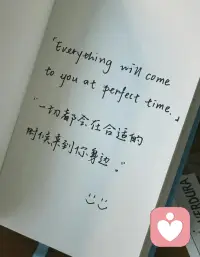 「Everything will come
to you at perfect time.」
"一切都会在合适的
时候来到你身边."
VERDURA